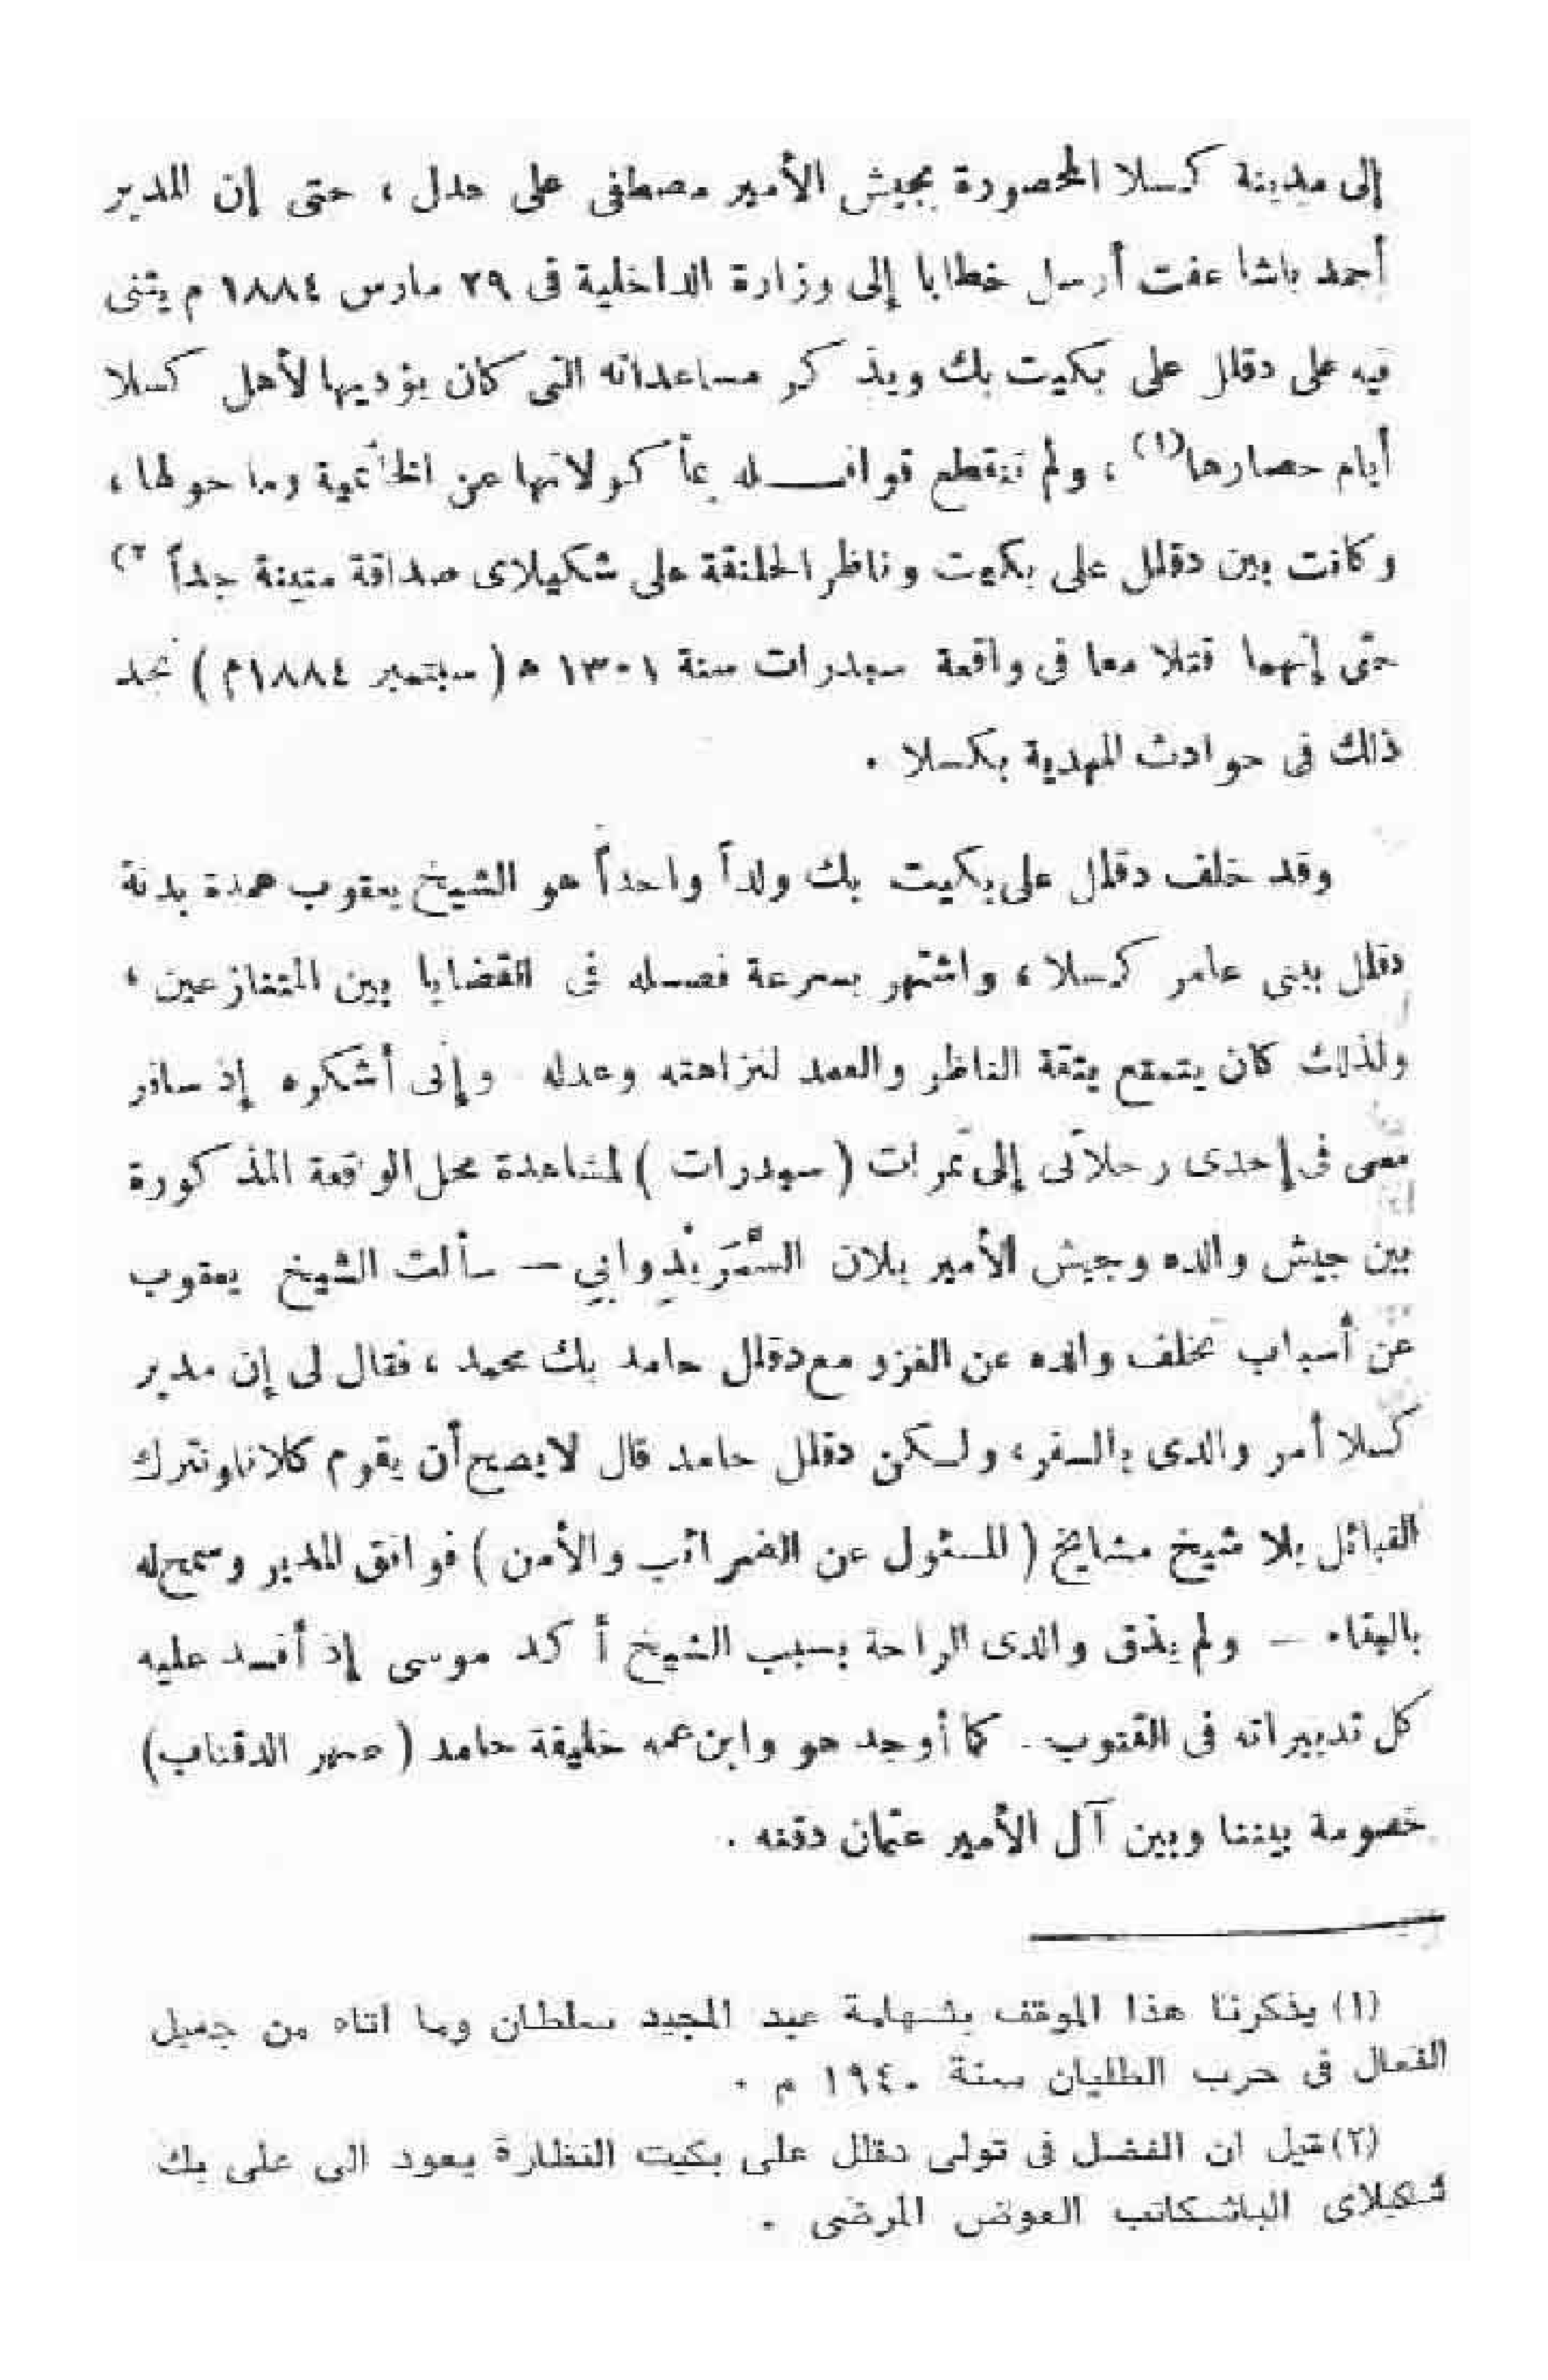 إلى مدينة كسلا المحصورة بجيش الأمير مصطفى على هدل ، حتى إن المدير
أحمد باشا عفت أرسل خطابا إلى وزارة الداخلية فى ٢٩ مارس ١٨٨٤ م يثنى
فيه على دقلل على بكيت بك ويذكر مساعداته التى كان يؤديها لأهل كسلا
أيام حصارها(١) ، ولم تنقطع قوافله بمأكولاتها عن الختمية وما حولها ،
وكانت بين دقلل على بكيت وناظر الحلنقة على شكيلاى صداقة متينة جداً ٢)
حتى إنهما قتلا معا فى واقعة سبدرات سنة ١٣٠١ ه ( سبتمبر ١٨٨٤م ) نجد
ذلك فى حوادث المهدية بكسلا .
وقد خلف دقلل على بكيت بك ولداً واحداً هو الشيخ يعقوب عمدة بدنة
دقلل ببنى عامر كسلا ، واشتهر بسرعة فصله فى القضايا بين المتنازعين ،
ولذلك كان يتمتع بثقة الناظر والعمد لنزاهته وعدله وإنى أشكره إذ سافر
معى فى إحدى رحلاتى إلى تمرات ( سبدرات ) لمشاهدة محل الواقعة المذكورة
بين جيش والده وجيش الأمير بلان السَّمَرَنْدِوابِي — سألت الشيخ يعقوب
عن أسباب تخلف والده عن الغزو مع دقلل حامد بك محمد ، فقال لى إن مدير
كسلا أمر والدى بالسفر ، ولكن دقلل حامد قال لا يصح أن يقوم كلانا ونترك
القبائل بلا شيخ مشايخ ( المسئول عن الضرائب والأمن ) فوافق المدير وسمح له
بالبقاء — ولم يذق والدى الراحة بسبب الشيخ أكد موسى إذ أفسد عليه
كل تدبيراته فى القتوب . كما أوجد هو وابن عمه خليفة حامد ( صهر الدقناب )
خصومة بيننا وبين آل الأمير عثمان دقنه .
(١) يذكرنا هذا الموقف بشهامة عبد المجيد سلطان وما اتاه من جميل
الفعال فى حرب الطليان سنة ١٩٤٠ م .
(٢) قيل ان الفضل فى تولى دقلل على بكيت النظارة يعود الى على بك
شكيلاى الباشكاتب العوض المرضى .